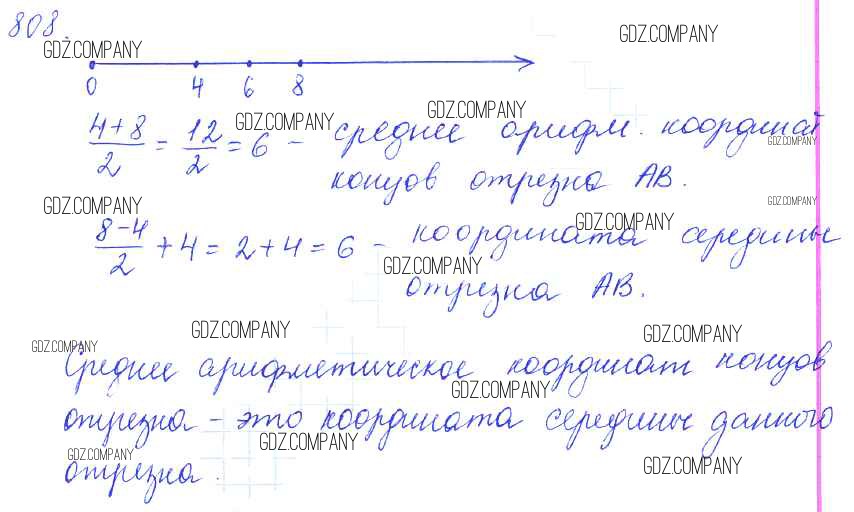 808.
GDZ.COMPANY
GDZ.COMPANY
0 4 6 8
(4+8)/2 = 12/2 = 6 – среднее арифм. координат
GDZ.COMPANY
GDZ.COMPANY
GDZ.COMPANY
концов отрезка AB.
GDZ.COMPANY
GDZ.COMPANY
(8-4)/2 + 4 = 2 + 4 = 6 – координата середины
GDZ.COMPANY
GDZ.COMPANY
отрезка AB.
GDZ.COMPANY
GDZ.COMPANY
GDZ.COMPANY
Среднее арифметическое координат концов
GDZ.COMPANY
отрезка – это координата середины данного
GDZ.COMPANY
GDZ.COMPANY
отрезка.
GDZ.COMPANY